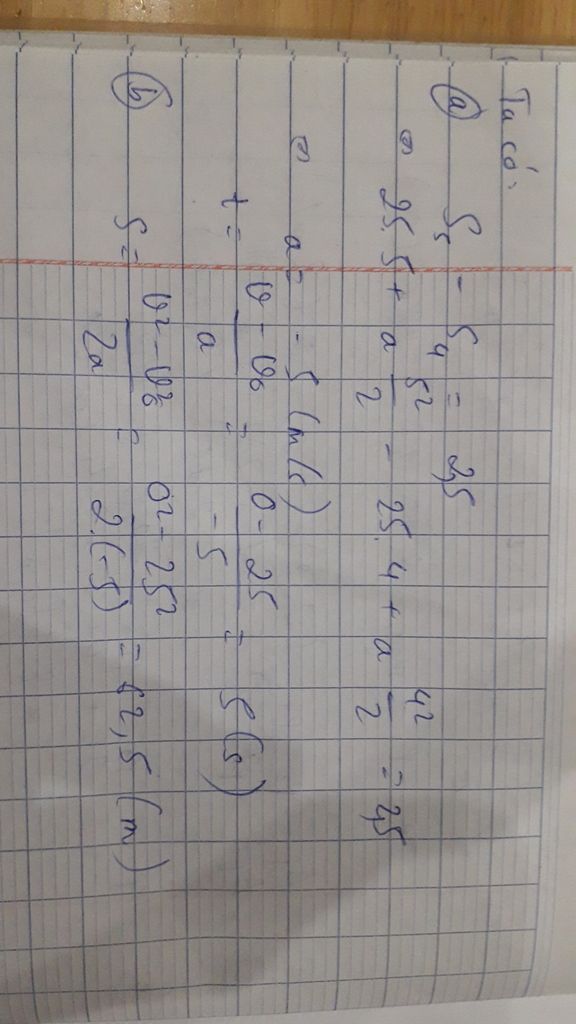 Ta có:
ⓐ S₅ - S₄ = 2,5
⇔ 25.5 + a 5²/2 - 25.4 + a 4²/2 = 2,5
⇔ a = -5 (m/s)
t = (v - v₀)/a = (0 - 25)/(-5) = 5 (s)
ⓑ S = (v² - v₀²)/(2a) = (0² - 25²)/(2.(-5)) = 62,5 (m)